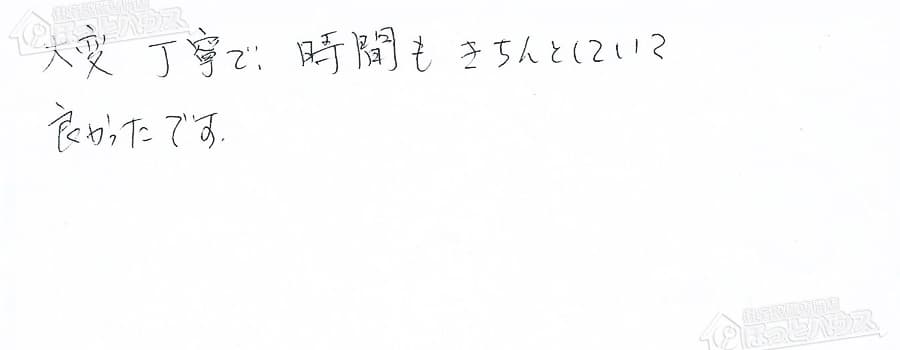 大変 丁寧で、時間も きちんとしていて
良かったです.
ほっとハウス
ほっとハウス